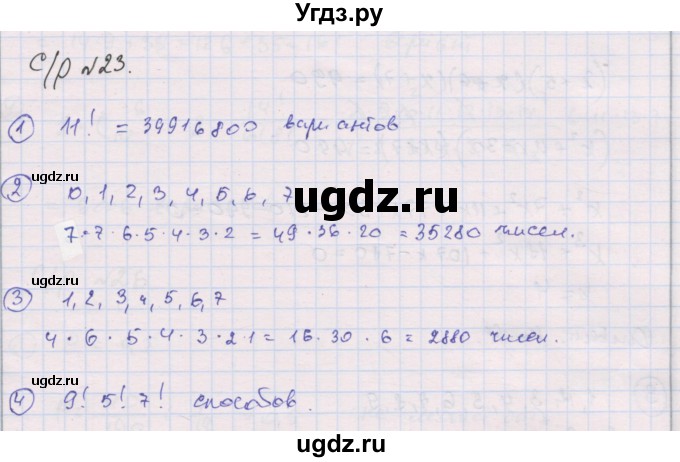 Угдз.ру
С/р №23.
1 11! = 39916800 вариантов
ugdz.ru
ugdz.ru
2 0, 1, 2, 3, 4, 5, 6, 7
ugdz.ru
7·7·6·5·4·3·2 = 49·36·20 = 35280 чисел.
3 1, 2, 3, 4, 5, 6, 7
4·6·5·4·3·2·1 = 16·30·6 = 2880 чисел.
ugdz.ru
ugdz.ru
4 9! 5! 7! способов.
ugdz.ru